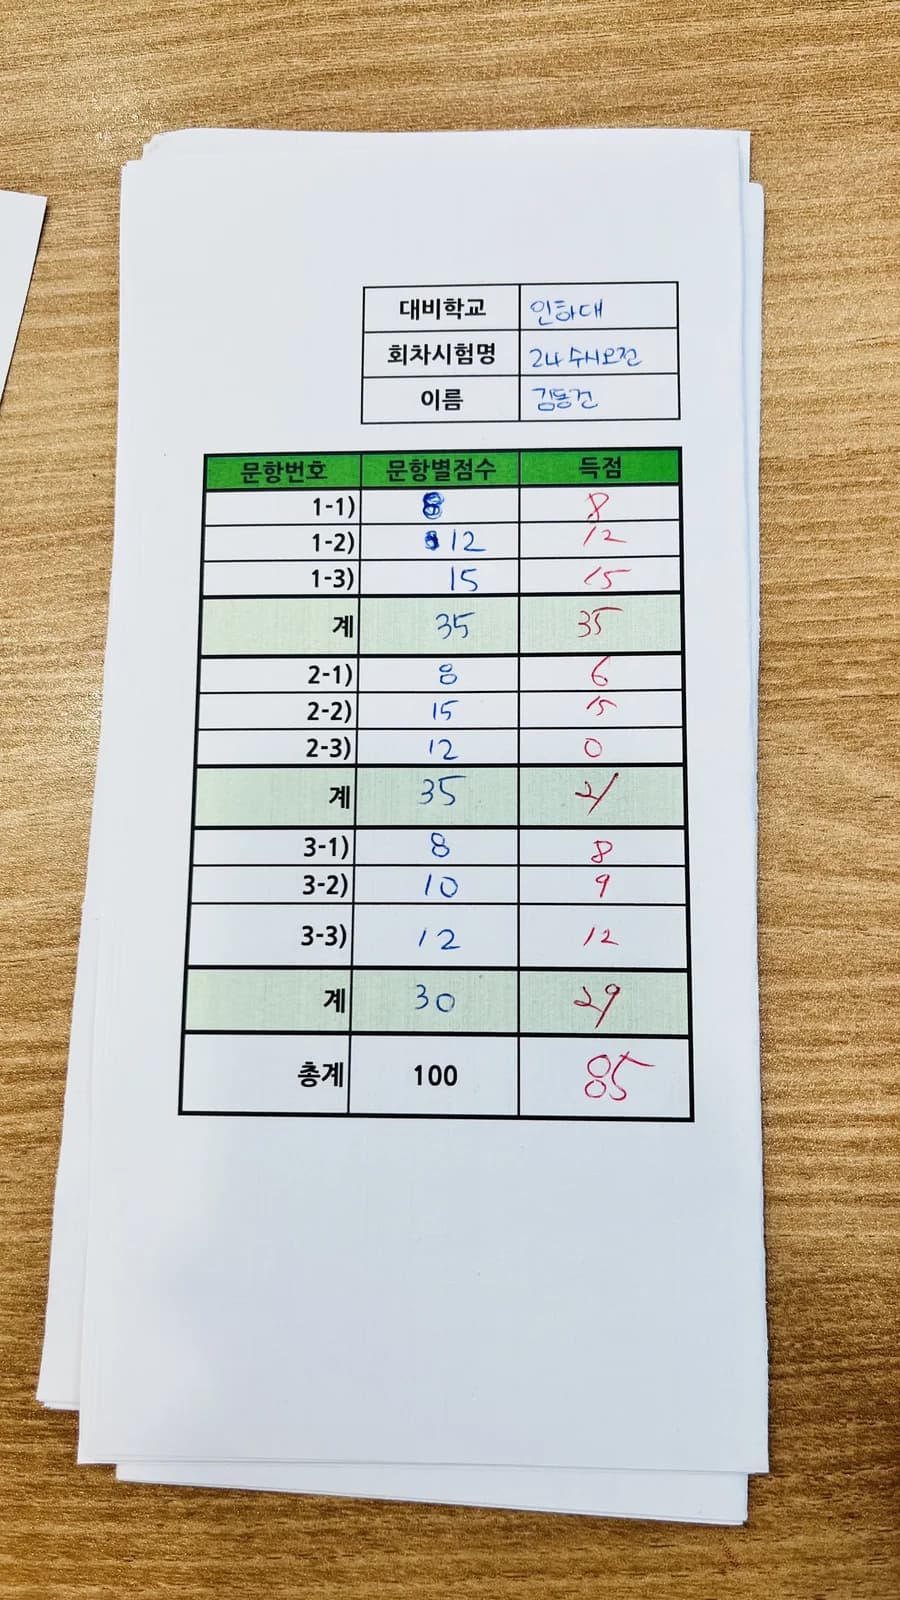 대비학교 인하대
회차시험명 24 수시오전
이름 김동건
문항번호 문항별점수 득점
1-1) 8 8
1-2) 12 12
1-3) 15 15
계 35 35
2-1) 8 6
2-2) 15 15
2-3) 12 0
계 35 21
3-1) 8 8
3-2) 10 9
3-3) 12 12
계 30 29
총계 100 85